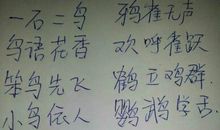 一石二鸟 鸦雀无声
鸟语花香 欢呼雀跃
笨鸟先飞 鹤立鸡群
小鸟依人 鹦鹉学舌